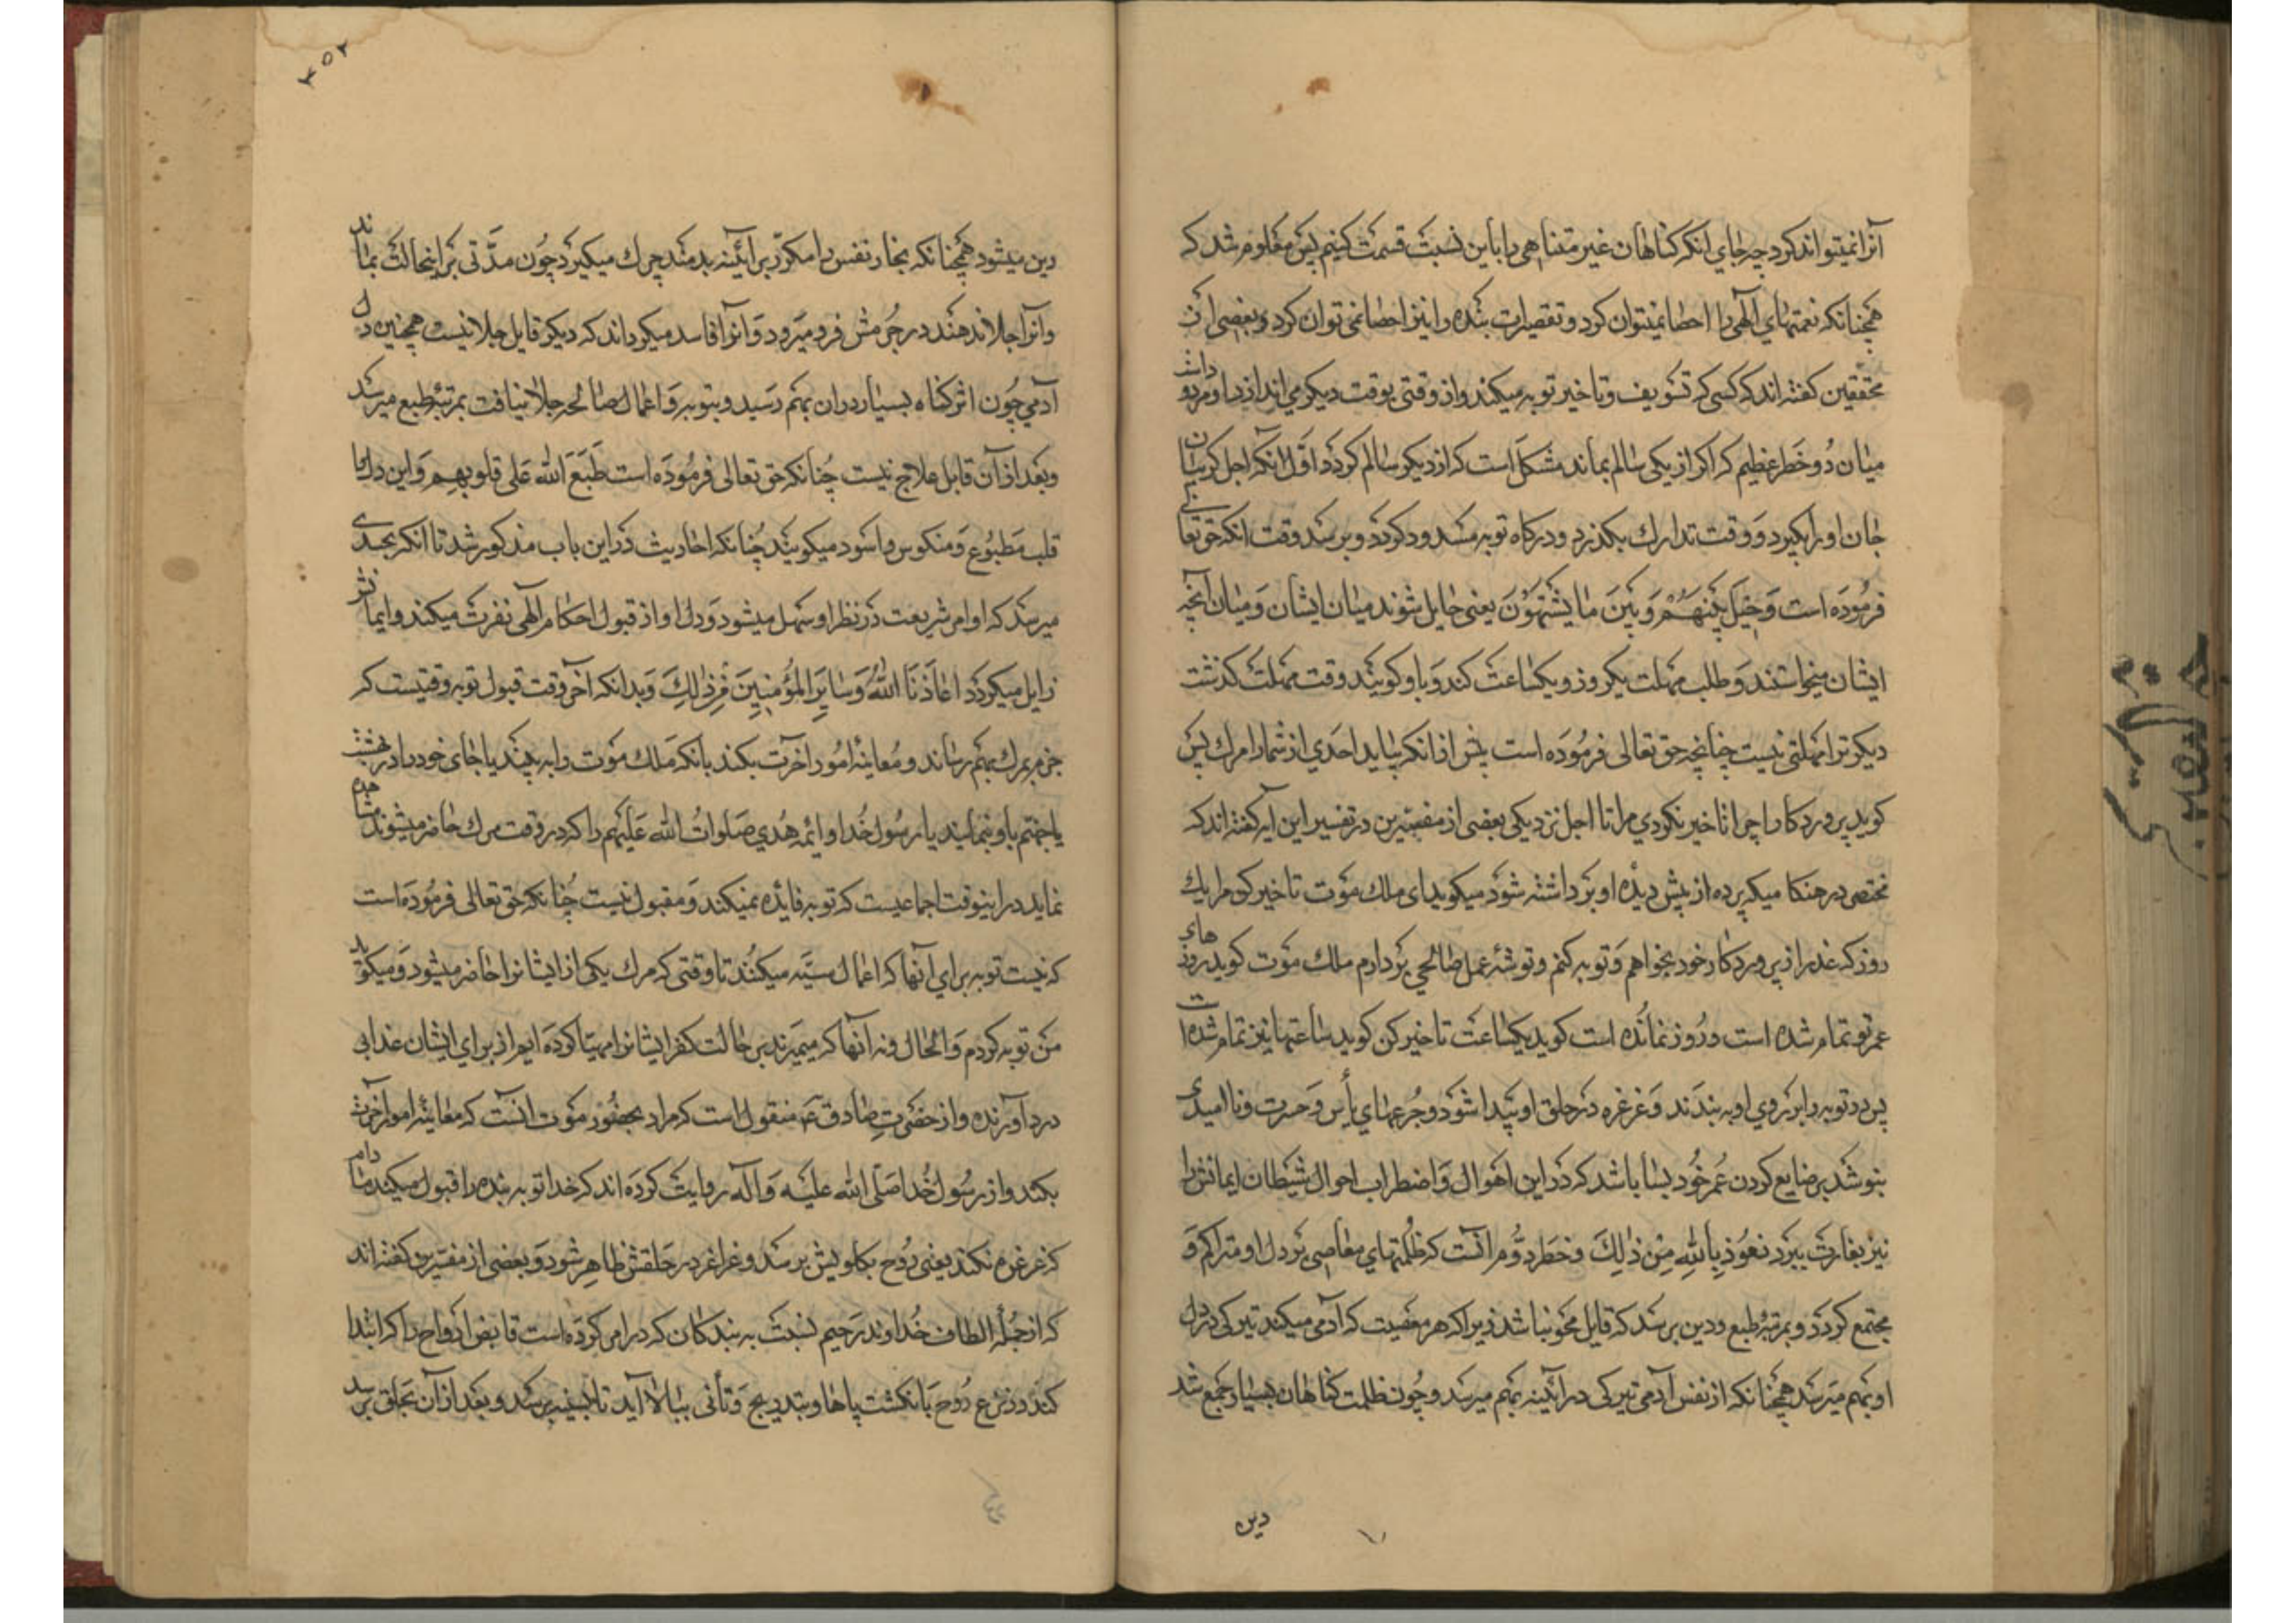 آنرا نمیتواند کرد چه جای آنکه کناهان غیر متناهی را باین نسبت قسمت کنیم پس معلوم شد که
همچنانکه نعمتهای الهی را احصا نمیتوان کرد و تقصیرات بنده را نیز احصا نمی توان کرد و بعضی از
محققین کفته اند که کسی که تسویف و تاخیر توبه میکند و از وقتی بوقت دیکر می اندازد او مردو داست
میان دو خطر عظیم که اکر از یکی سالم بماند مشکل است که از دیکر سالم کردد اول آنکه اجل کریبان
جان او را بکیرد و وقت تدارک بکذرد و درکاه توبه مسدود کردد و برسد وقت آنکه حق تعالی
فرموده است وَحِیلَ بَیْنَهُمْ وَبَیْنَ مَا یَشْتَهُوْنَ یعنی حایل شوند میان ایشان و میان آنچه
ایشان میخواستند و طلب مهلت یکروز و یکساعت کند و باو کویند وقت مهلت کذشت
دیکر ترا مهلتی نیست چنانچه حق تعالی فرموده است پیش از آنکه بیاید احدی از شما را مرک پس
کوید پروردکارا چرا تاخیر نکردی مرا تا اجل نزدیکی بعضی از مفسرین در تفسیر این آیه کفته اند که
محتصی در هنکا میکه پرده از پیش دیده او برداشته شود میکوید ای ملک موت تاخیر کن مرا یک
روز که عذر از پروردکار خود بخواهم و توبه کنم و توشهٔ عمل صالحی بردارم ملک موت کوید روزهای
عمر تو تمام شده است و روز نمانده است کوید یکساعت تاخیر کن کوید ساعتها نیز تمام شده است
پس در توبه را بر روی او به بندند و غرغره در حلق او پیدا شود و جرعهای یأس و حسرت و ناامیدی
بنوشد بر ضایع کردن عمر خود بسا باشد که در این اهوال و اضطراب احوال شیطان ایمانش را
نیز بغارت ببرد نعوذ بِاللهِ مِنْ ذٰلِکَ و خطر دوم آنست که ظلمتهای معاصی بر دل او متراکم و
مجتمع کردد و بمرتبهٔ طبع و دین برسد که قابل محو نباشد زیرا که هر معصیت که آدمی میکند تیرکی در دل
او بهم میرسد همچنانکه از نفس آدمی تیرکی در آئینه بهم میرسد و چون ظلمت کناهان بسیار جمع شد
دین
۲۵۲
دین میشود همچنانکه بخار نفس را مکرر بر آئینه بدمند چرک میکیرد چون مدتی بر اینحالت بماند
و آنرا جلا ندهند در جرمش فرو میرود و آنرا فاسد میکرداند که دیکر قابل جلا نیست همچنین دل
آدمی چون اثر کناه بسیار در آن بهم رسید و بتوبه و اعمال صالحه جلا نیافت بمرتبهٔ طبع میرسد
و بعد از آن قابل علاج نیست چنانکه حق تعالی فرموده است طَبَعَ اللهُ عَلی قلوبِهِم و این دل را
قلب مطبوع و منکوس و اسود میکویند چنانکه احادیث در این باب مذکور شد تا آنکه بحدی
میرسد که اوامر شریعت در نظر او سهل میشود و دل او از قبول احکام الهی نفرت میکند و ایمانش
زایل میکردد اعاذَنَا اللهُ وَ سایِرَ المُؤمِنِینَ مِن ذٰلِکَ و بدانکه آخر وقت قبول توبه وقتیست که
جزم بمرک بهم رساند و معاینهٔ امور آخرت بکند بانکه ملک موت را به بیند یا جای خود را در بهشت
یا جهنم باو بنمایند یا رسول خدا و ائمه هدی صلوات الله علیهم را که در وقت مرک حاضر میشوند مشاهده
نماید در اینوقت اجماعیست که توبه فایده نمیکند و مقبول نیست چنانکه حق تعالی فرموده است
که نیست توبه برای آنها که اعمال سیئه میکنند تا وقتی که مرک یکی از ایشانرا حاضر میشود و میکوید
من توبه کردم والحال و نه آنها که میمیرند بر حالت کفر ایشانرا مهیا کرده ایم از برای ایشان عذابی
درد آورنده و از حضرت صادق ع منقول است که مراد بحضور موت آنست که معاینهٔ امور آخرت
بکند و از رسول خدا صلی الله علیه و آله روایت کرده اند که خدا توبه بنده را قبول میکند مادام
که غرغره نکند یعنی روح بکلویش برسد و غراغر در حلقش ظاهر شود و بعضی از مفسرین کفته اند
که از جملهٔ الطاف خداوند رحیم نسبت به بندکان که در امر کرده است قابض ارواح را که ابتدا
کند در نزع روح بانکشت پاها و بتدریج و تأنی ببالا آید تا بسینه برسد و بعد از آن بحلق برسد